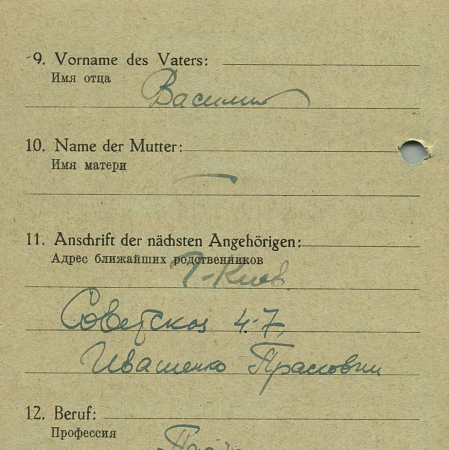 9. Vorname des Vaters:
Имя отца
Василий
10. Name der Mutter:
Имя матери
—
11. Anschrift der nächsten Angehörigen:
Адрес ближайших родственников
г-Киев
Советская 4-7,
Иващенко Прасковии
12. Beruf:
Профессия